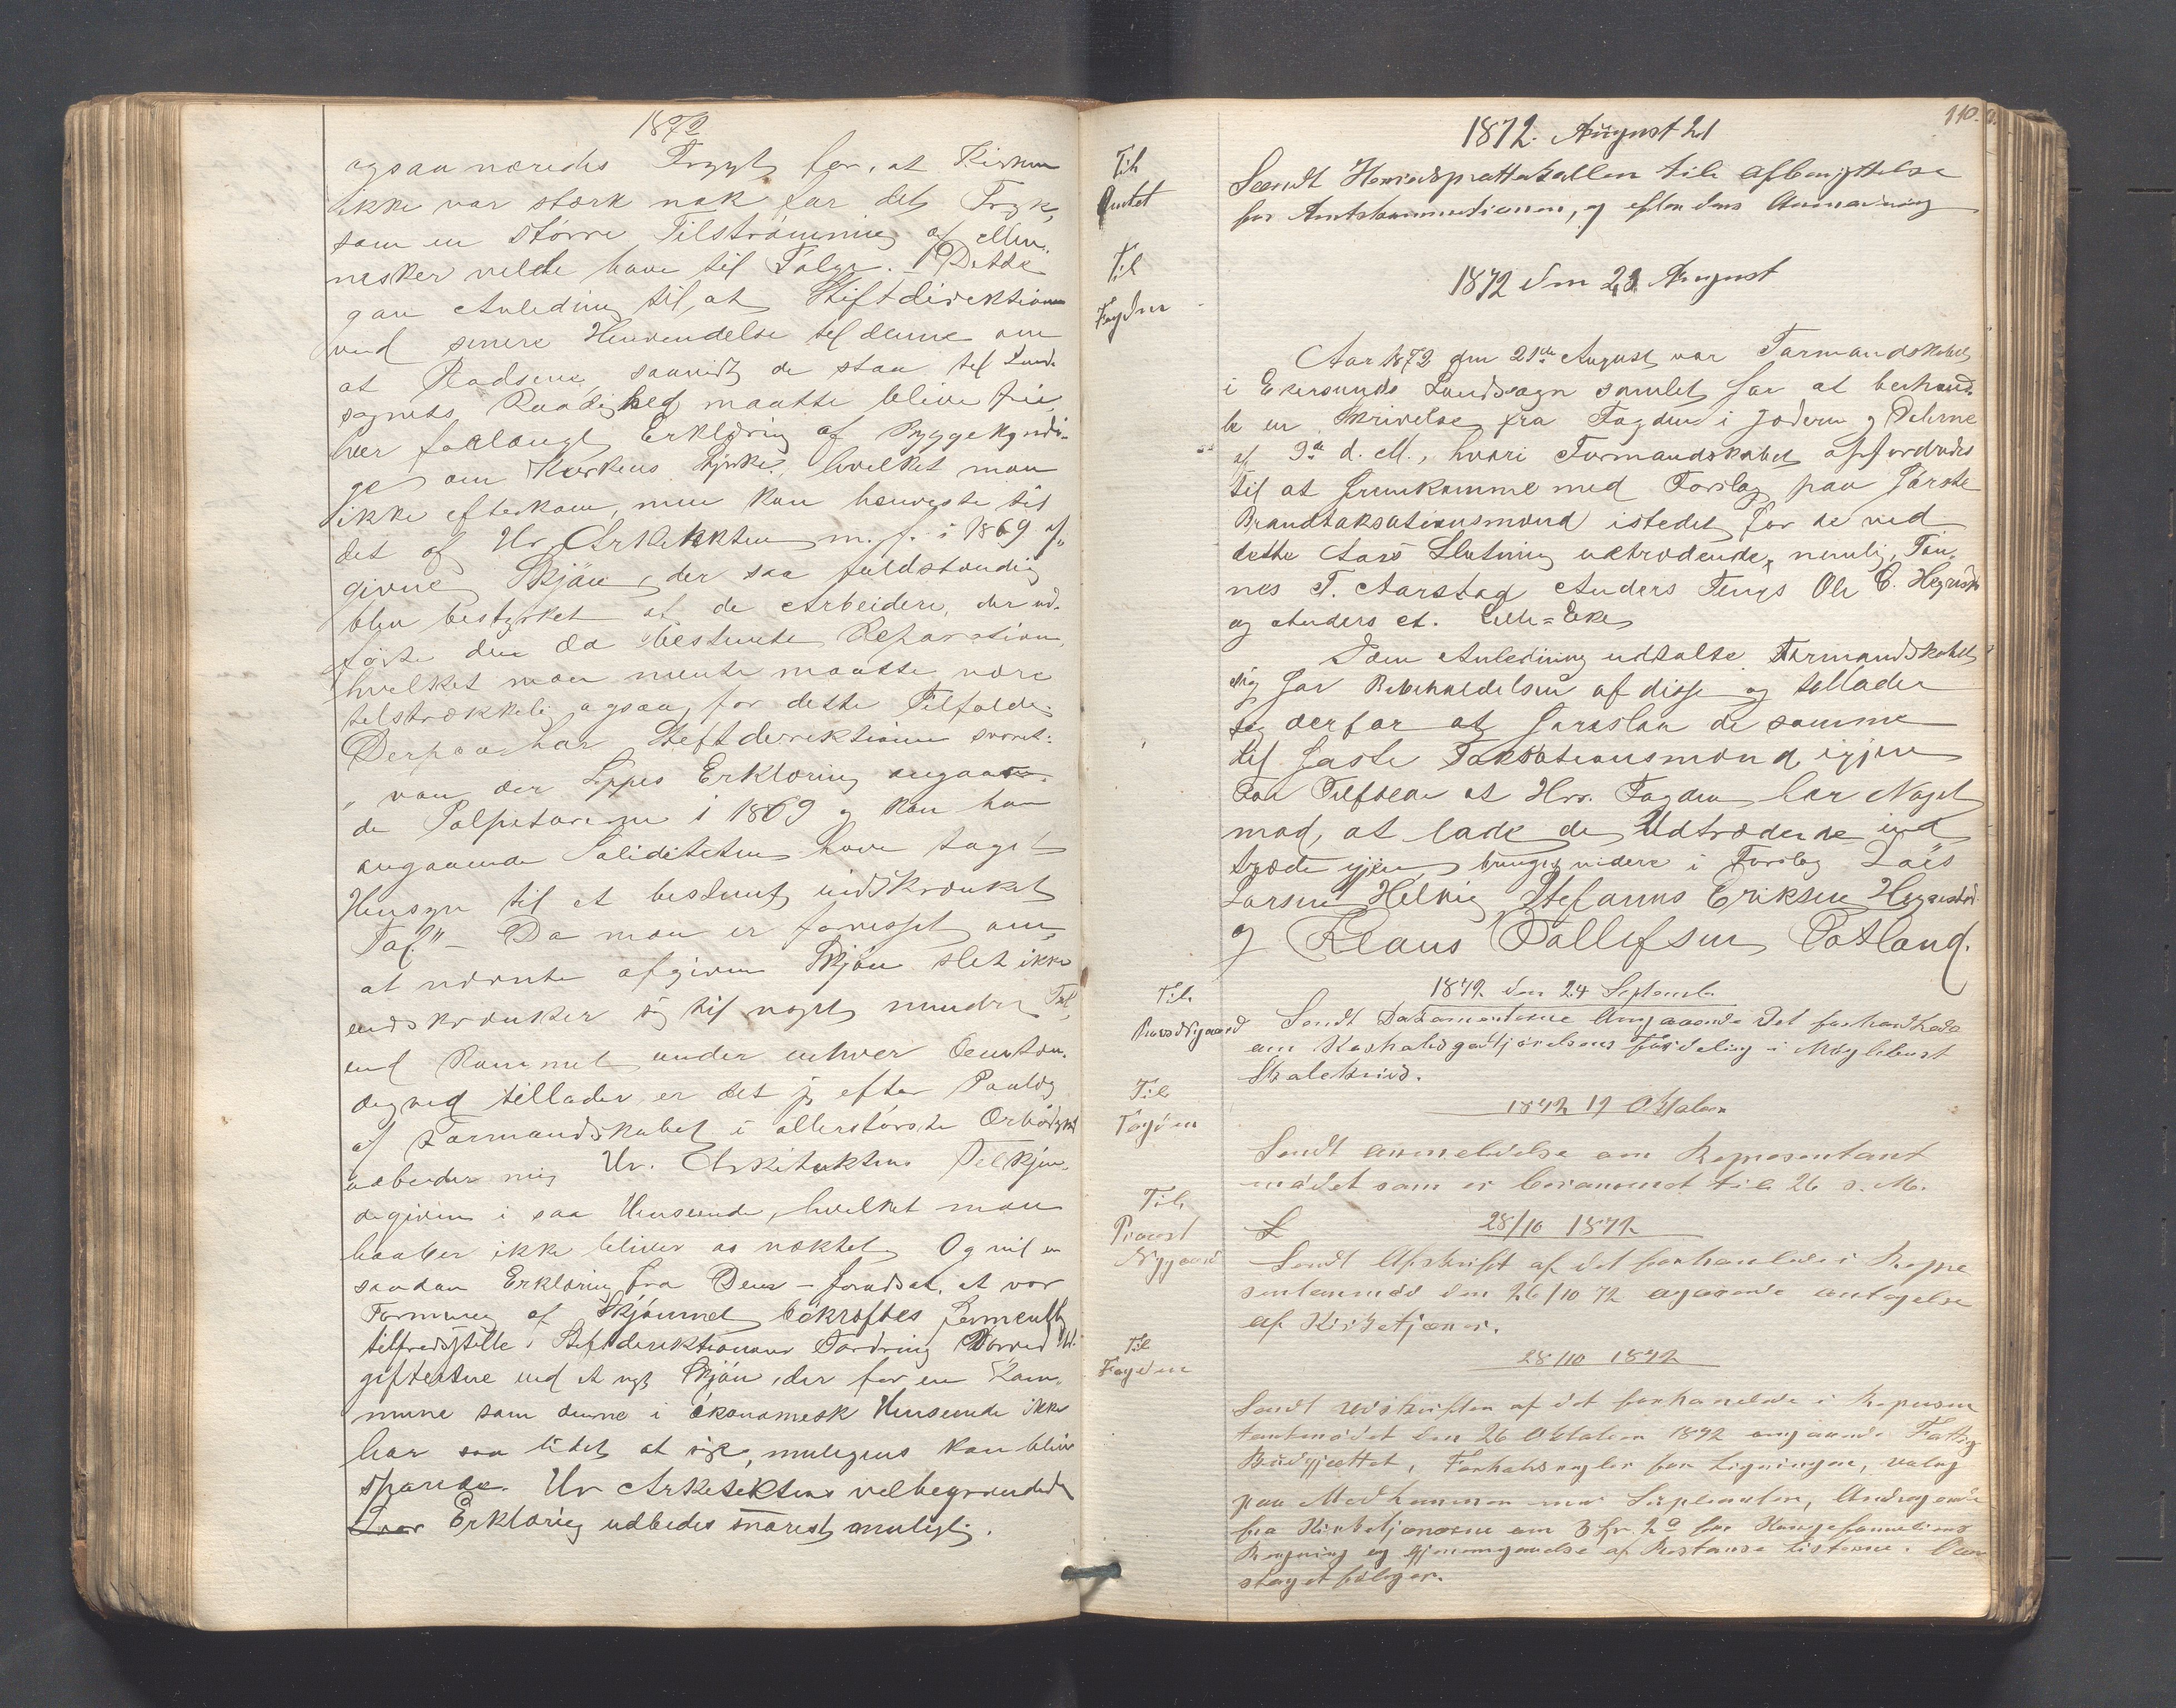 1872
ogsaa næredes Frygt for, at Kirken
ikke var stærk nok for det Tryk,
som en större Tilströmning af Men-
nesker vilde have til Fölge. Dette
gav Anledning til, at Stiftdirektionen
ved senere Henvendelse til denne om
at Pladsene, saavidt de staa til Land-
sognets Raadighed maatte blive frie
her forlangt Erklæring af Byggekyndi-
ge om Kirkens Styrke, hvilket man
ikke efterkom, men kun henviste til
det af Hr. Arkitekten m. f. i 1869 af-
givne Skjön, der saa fuldstændig
blev bestyrket af de Arbeidere, der ud-
förte den da bestemte Reparation,
hvilket man mente maatte være
tilstrækkelig ogsaa for dette Tilfælde.
Derpaa har Stiftdirektionen svaret:
" van der Lippes Erklæring angaar
de Pulpiturerne i 1869 og kan han
angaaende Soliditeten have taget
Hensyn til et bestemt indskrænket
Tal." - Da man er forvisset om,
at nævnte afgivne Skjön slet ikke
indskrænker sig til noget mindre Tal,
end Rummet under enhver Omstæn-
dighed tillader, er det jeg efter Paalæg
af Formandskabet i allerstörste Ærbödighed
udbeder mig Hr. Arkitektens Tilkjen-
degiven i saa Henseende, hvilket man
haaber ikke bliver os nægtet. Og vil en
saadan Erklæring fra Dem - forudsat, at vor
Formening af Skjönnet bekræftes formentlig
tilfredsstille Stiftdirektionens Fordring Hvorved Ud-
gifterne ved et nyt Skjön, der for en Kom-
mune som denne i ökonomisk Henseende ikke
har saa lidet at sige, muligens kan blive
sparede. Hr Arkitektens velbegrundede
Svar Erklæring udbedes snarest muligt.
110.
1872. August 21
Til
Amtet
Sendt Herredsprottokollen til Afbenyttelse
for Amtskommunen, og efter dens Anmærkning
1872 den 21 August
Til
Fogden
Aar 1872 den 21de August var Formandskabet
i Ekersunds Landsogn samlet for at behand-
le en Skrivelse fra Fogden i Jæderen og Dalerne
af 9de d. M., hvori Formandskabet opfordredes
til at fremkomme med Forslag paa förste
Brandtaksationsmænd istedet for de ved
dette Aars Slutning udtrædende, nemlig, Tön-
nes T. Aarstad Anders Tengs Ole C. Hegrestad
og Anders A. Lille=Eke
I den Anledning udtalte Formandskabet
sig for Bibeholdelsen af disse og tillader
sig derfor at foreslaa de samme
til faste Taksationsmænd igjen
For Tilfælde at Hr. Fogden har Noget
mod, at lade de Udtrædende ind
træde igjen, bringes videre i Forslag Lars
Larsen Helvig Stefanus Eriksen Hegrestad
og Klaus Tollefsen Potland.
1872 den 24 September
Til
Provst Nygaard
Sendt Dokumenterne Angaaende det forhandlede
om Kirkesgodtgjörelsens Fordeling i Möglebust
Skolekreds.
1872 19 Oktober
Til
Fogden
Sendt anmeldelse om Representant
mödet som er berammet til 26 d. M.
28/10 1872
Til
Provst
Nygaard
Sendt Afskrift af det forhanlede i Reppre
sentanmöd den 26/10 72 agaaende antagelse
af Kirketjener.
28/10 1872
Til
Fogden
Sendt Udskriften af det forhandlede i Represen
tantmödet den 26 Oktober 1872 angaaende Fattig
Budgjettet, Forholdsregler for Ligningen, valg
paa Medhemmer med Suplianter, Andragende
fra Kirketjenerne om 3 for Kongefamiliens
Bregning og Gjennemgaaelse af Restanse listerne.
staget fölger.